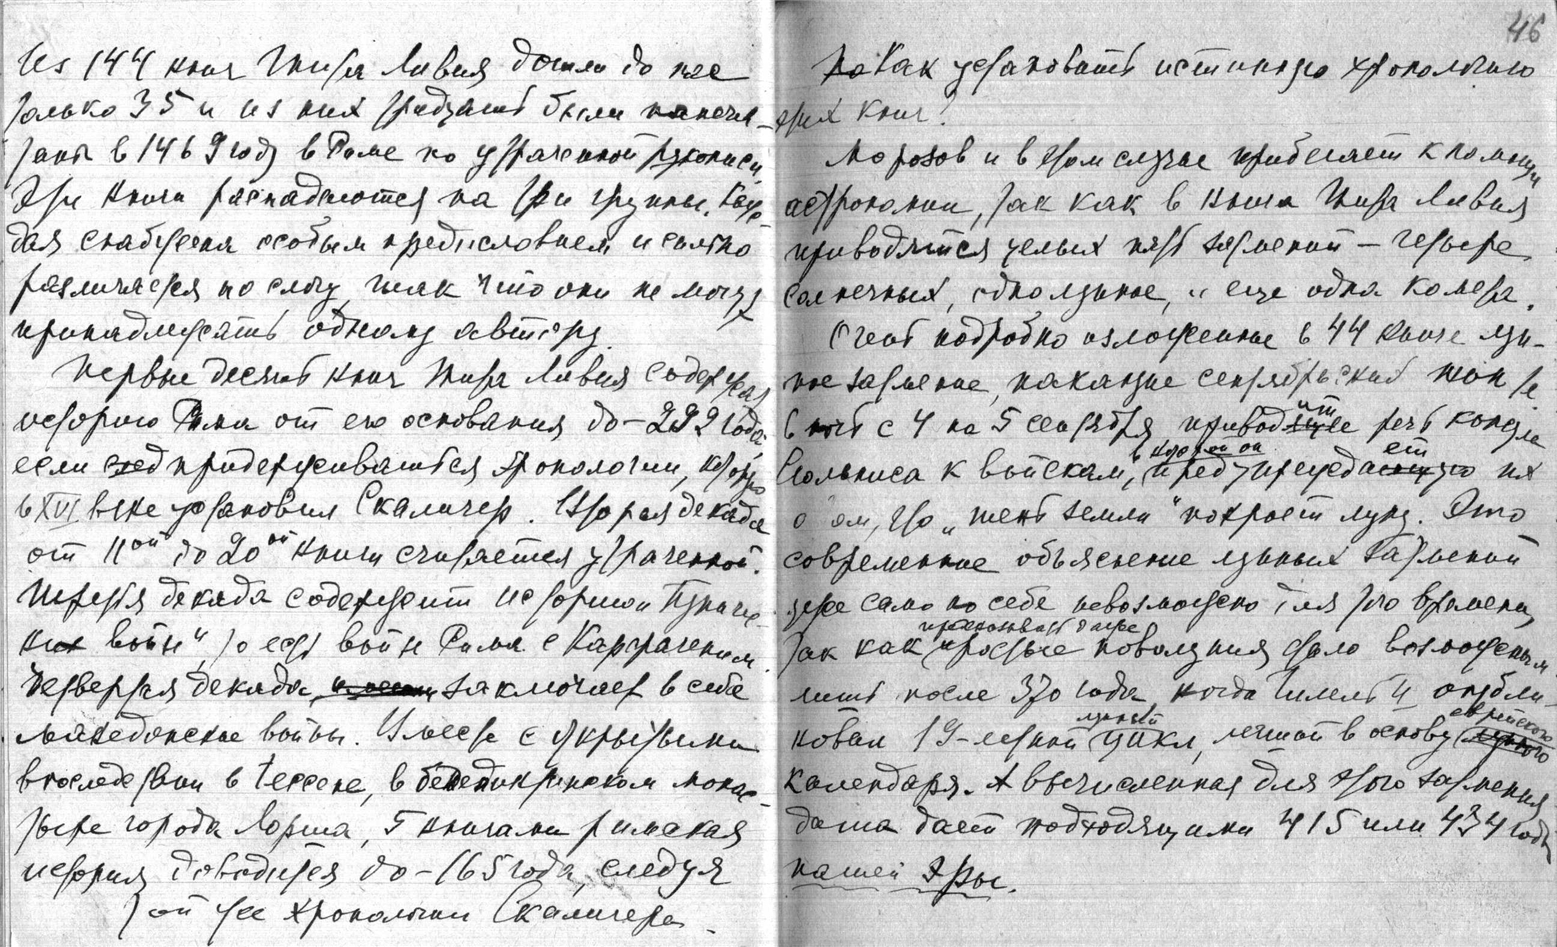 Из 144 книг Тита Ливия дошли до нас
только 35 и из них тридцать были напеча-
таны в 1469 году в Риме по утраченной рукописи.
Эти книги распадаются на три группы. Каж-
дая снабжена особым предисловием и сильно
различается по слогу, так что они не могут
принадлежать одному автору.
Первые десять книг Тита Ливия содержат
историю Рима от его основания до -292 года,
если придерживаться хронологии, которую
в XVI веке установил Скалигер. Вторая декада
от 11ой до 20ой книги считается утраченной.
Третья декада содержит историю Пуниче-
ких войн", то есть войн Рима с Карфагеном.
Четвертая декада заключает в себе
македонские войны. Вместе с открытыми
впоследствии в Гессене, в бенедиктинском монас-
тыре города Лорша, 5 книгами римская
история доводится до -165 года, следуя
той же хронологии Скалигера.
46
Как установить истинную хронологию
этих книг?
Морозов и в этом случае прибегает к помощи
астрономии, так как в книгах Тита Ливия
приводятся целых пять затмений – четыре
солнечных, одно лунное, и еще одна комета.
Очень подробно изложенное в 44 книге лун-
ное затмение, накануне сентябрьских нон, т.е.
в ночь с 4 на 5 сентября приводит речь консула
к войскам, в которой он предупреждает их
о том, что „тень земли" покроет луну. Это
современное объяснение лунных затмений
уже само по себе невозможно для того времени,
так как предсказывать такие простые новолуния стало возможным
лишь после 370 года когда Гилель II опубли-
ковал 19-летний лунный цикл, легший в основу еврейского
календаря. А вычисленная для этого затмения
дата дает подходящими 415 или 434 годы
нашей эры.